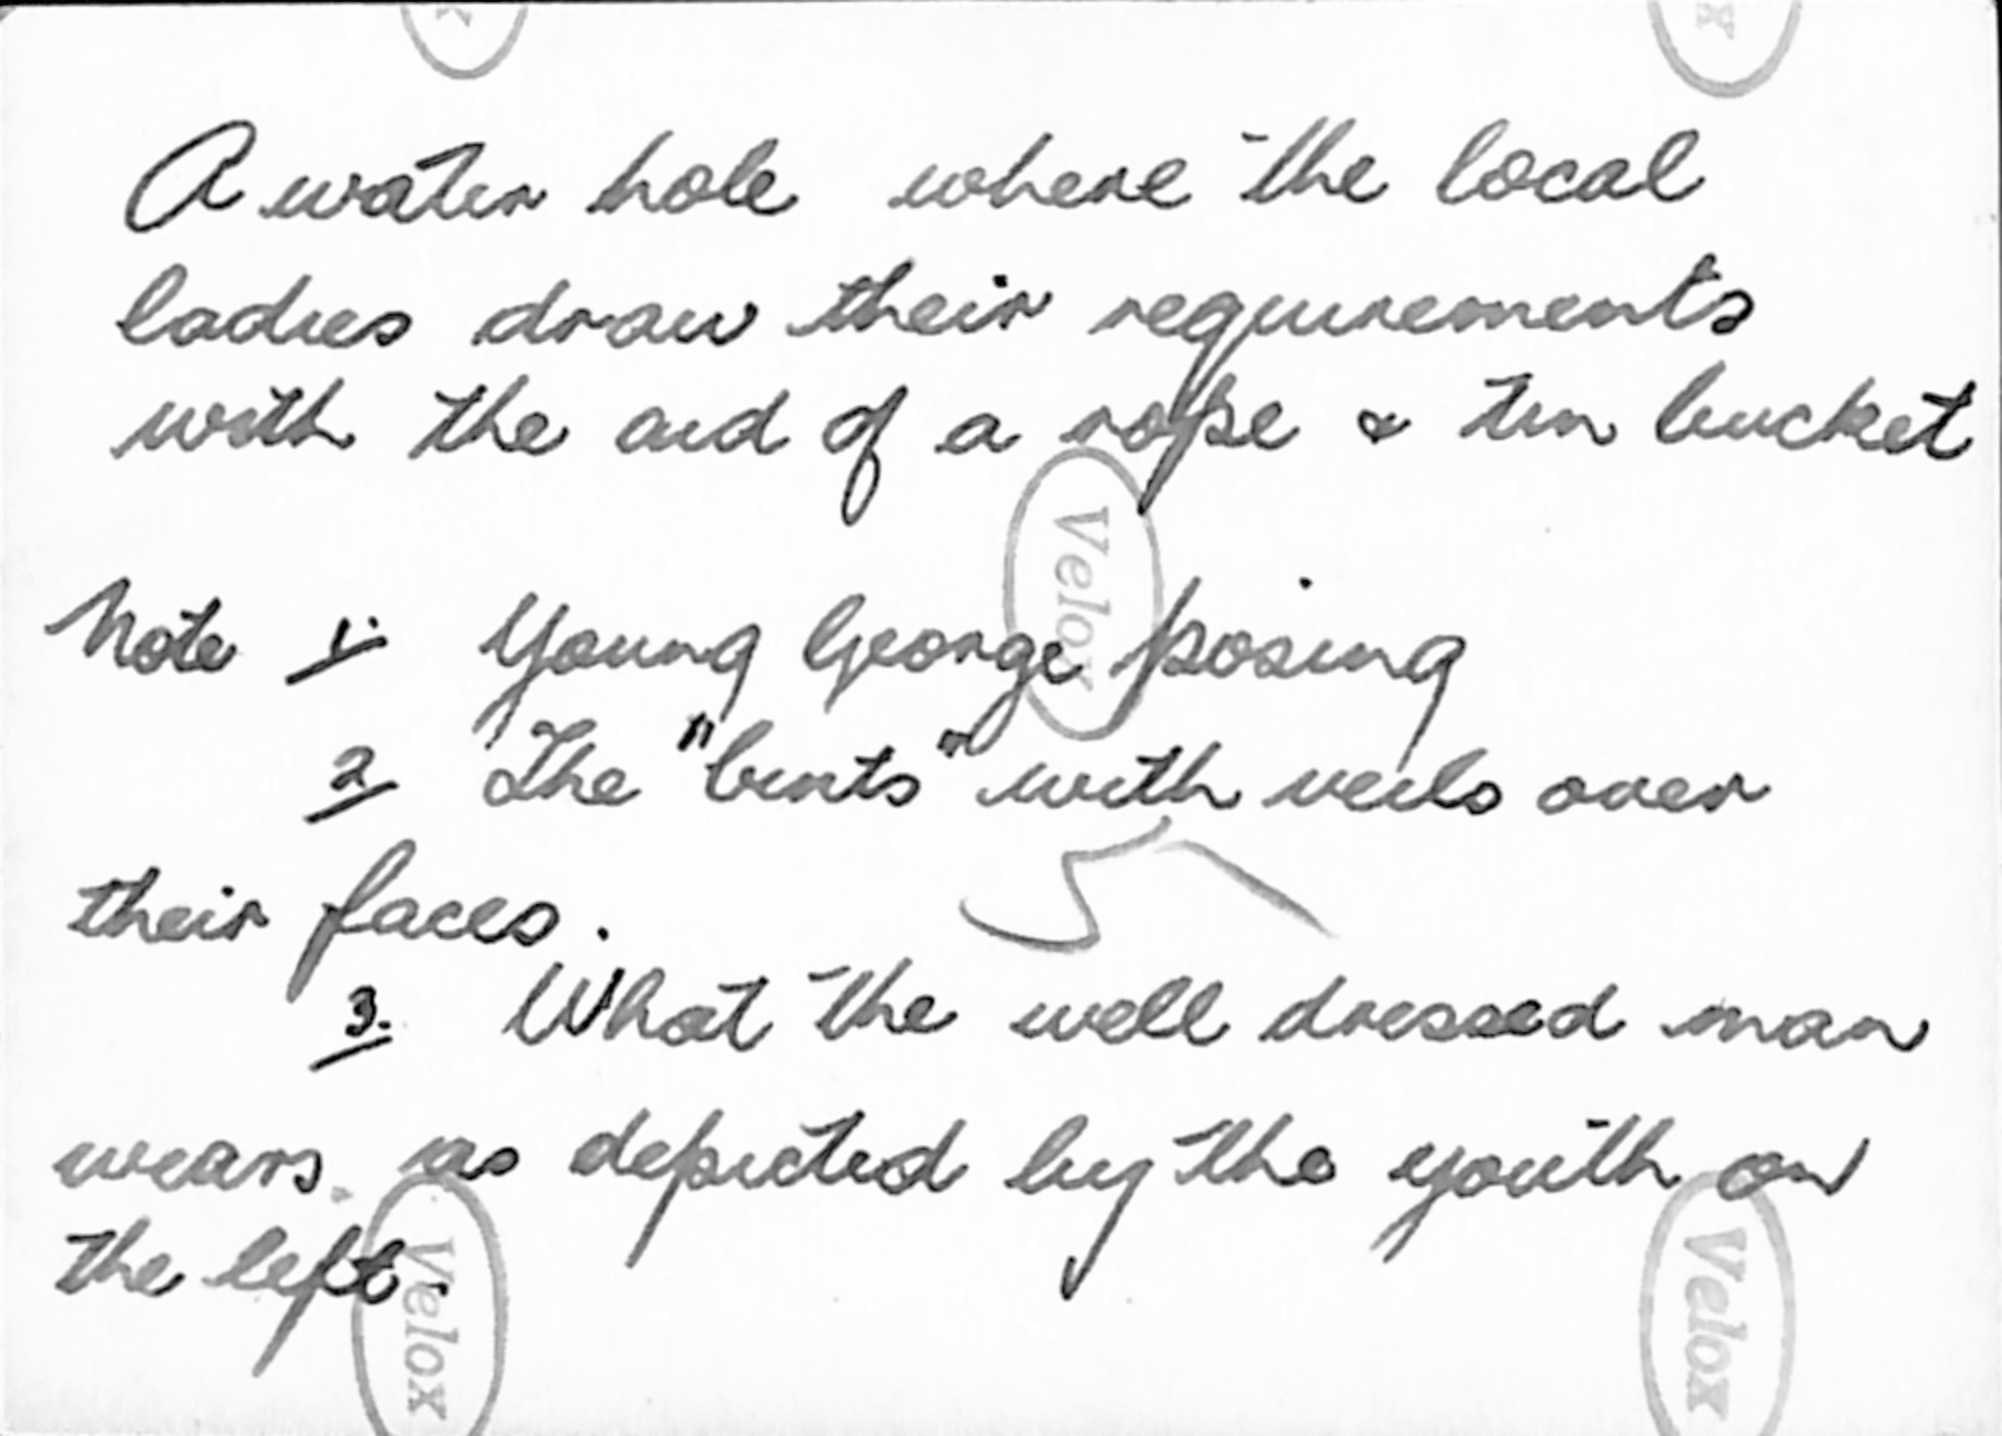 A water hole where the local
ladies draw their requirements
with the aid of a rope & tin bucket
Velox
Note 1. Young George posing
2 The "bints" with veils over
their faces.
3. What the well dressed man
wears as depicted by the youth on
the left.
Velox
Velox